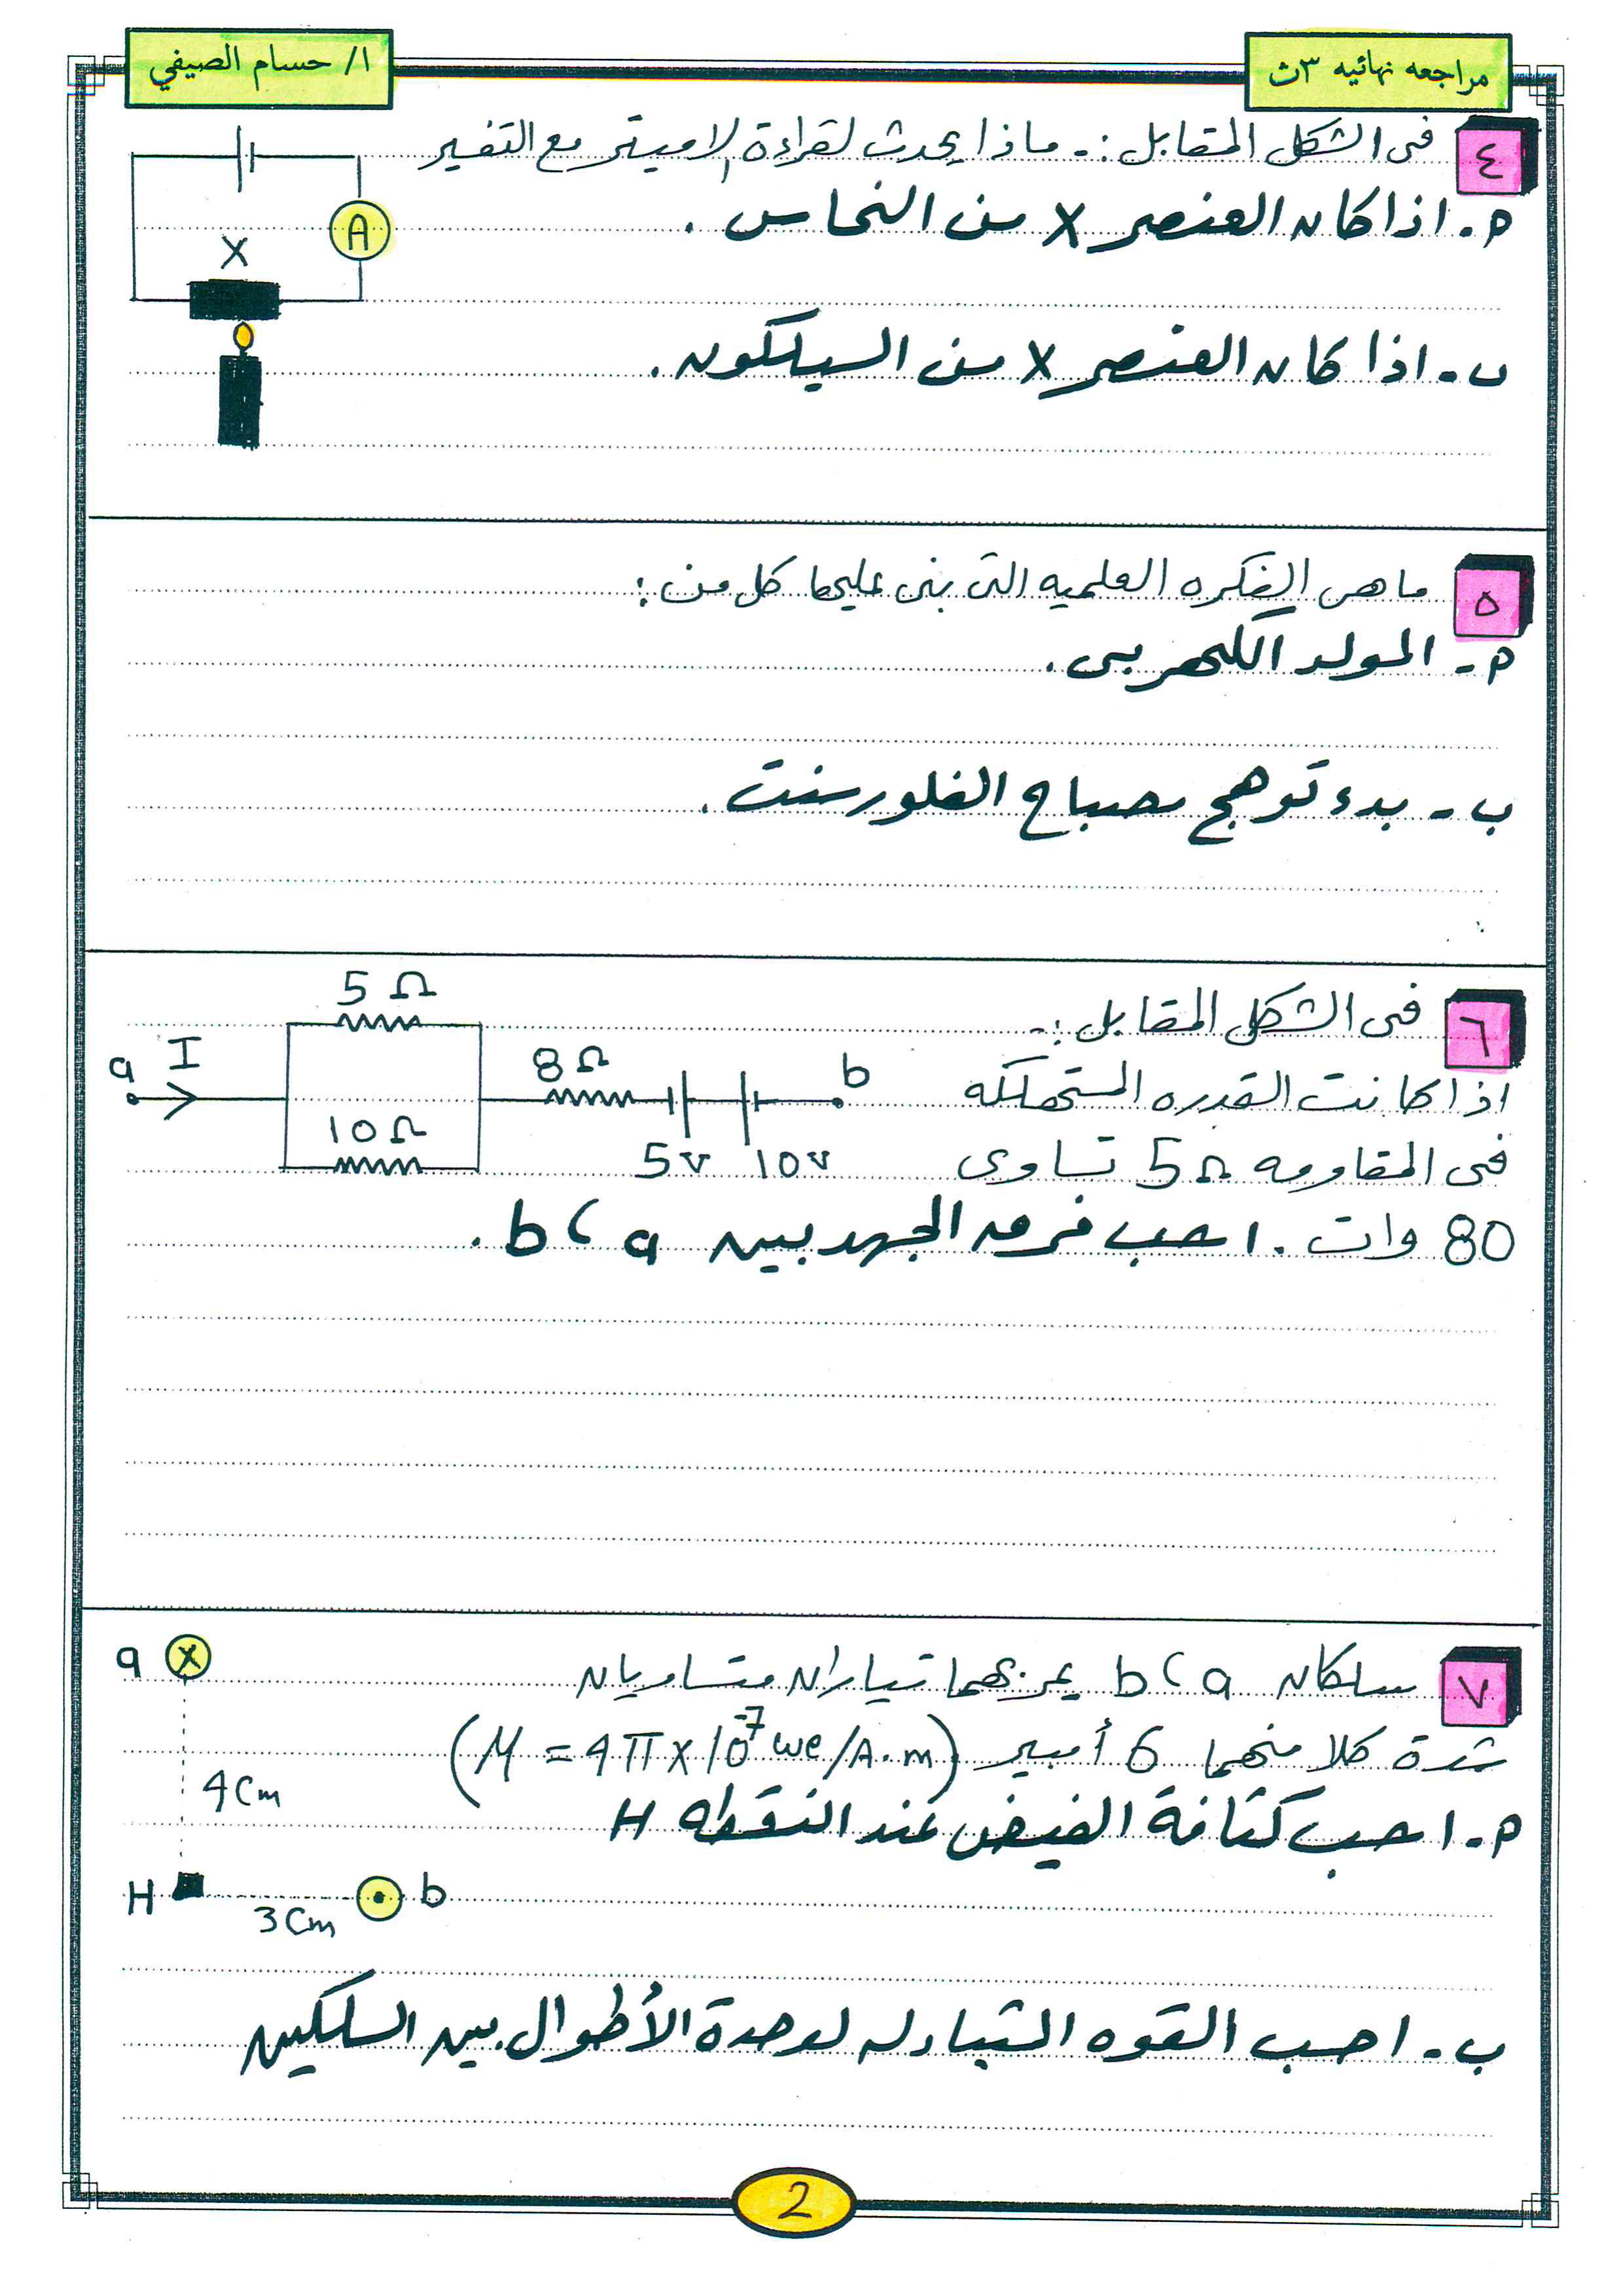 مراجعه نهائيه ٣ث
ا/ حسام الصيفي
٤ فى الشكل المقابل :- ماذا يحدث لقراءة الاميتر مع التفسير
م - اذا كان العنصر X من النحاس .
A
X
ب - اذا كان العنصر X من السيلكون .
٥ ما هى الفكره العلميه التى بنى عليها كل من :
م - المولد الكهربى .
ب - بدء توهج مصباح الفلورسنت .
٦ فى الشكل المقابل :-
5 Ω
a I 8 Ω b
10 Ω
5v 10v
اذا كانت القدره المستهلكه
فى المقاومه 5 Ω تساوى
80 وات . احسب فرق الجهد بين a ، b .
٧ سلكان a ، b يمر بهما تياران متساويان
a X
شدة كلا منهما 6 أمبير (μ = 4π x 10⁻⁷ we/A.m)
4cm
م - احسب كثافة الفيض عند النقطه H
H b
3cm
ب - احسب القوه المتبادله لوحدة الأطوال بين السلكين
2